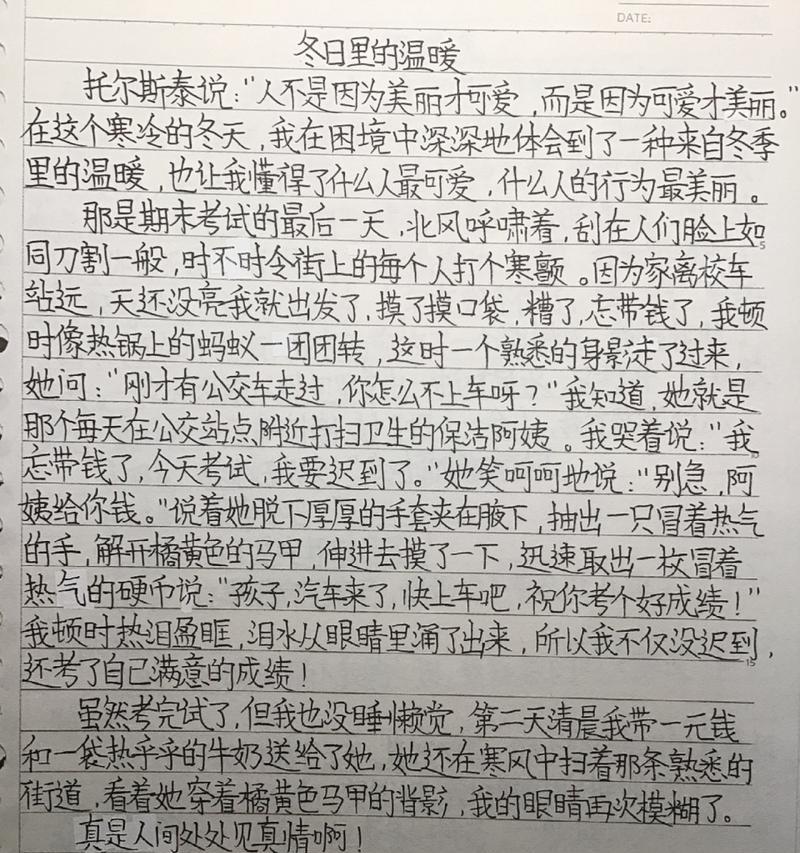 DATE:
冬日里的温暖
托尔斯泰说:"人不是因为美丽才可爱,而是因为可爱才美丽。"
在这个寒冷的冬天,我在困境中深深地体会到了一种来自冬季
里的温暖,也让我懂得了什么人最可爱,什么人的行为最美丽。
那是期末考试的最后一天,北风呼啸着,刮在人们脸上如
5
同刀割一般,时不时令街上的每个人打个寒颤。因为家离校车
站远,天还没亮我就出发了,摸了摸口袋,糟了,忘带钱了,我顿
时像热锅上的蚂蚁一团团转,这时一个熟悉的身影走了过来,
她问:"刚才有公交车走过,你怎么不上车呀?"我知道,她就是
那个每天在公交站点附近打扫卫生的保洁阿姨。我哭着说:"我
10
忘带钱了,今天考试,我要迟到了。"她笑呵呵地说:"别急,阿
姨给你钱。"说着她脱下厚厚的手套夹在腋下,抽出一只冒着热气
的手,解开橘黄色的马甲,伸进去摸了一下,迅速取出一枚冒着
热气的硬币说:"孩子,汽车来了,快上车吧,祝你考个好成绩!"
我顿时热泪盈眶,泪水从眼睛里涌了出来,所以我不仅没迟到,
15
还考了自己满意的成绩!
虽然考完试了,但我也没睡懒觉,第二天清晨我带一元钱
和一袋热乎乎的牛奶送给了她,她还在寒风中扫着那条熟悉的
街道,看着她穿着橘黄色马甲的背影,我的眼睛再次模糊了。
真是人间处处见真情啊!